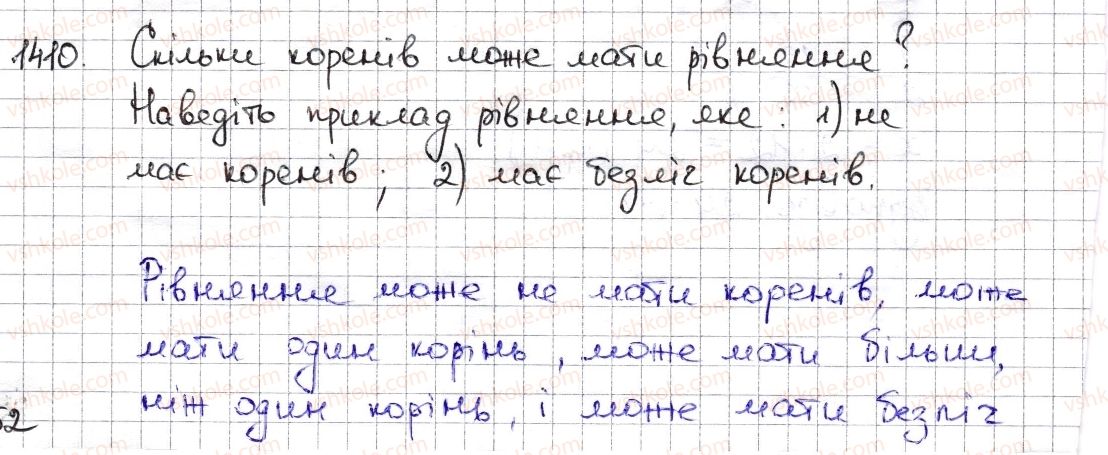 1410. Скільки коренів може мати рівняння?
Наведіть приклад рівняння, яке: 1) не
має коренів; 2) має безліч коренів.
Рівняння може не мати коренів, може
мати один корінь, може мати більш,
ніж один корінь, і може мати безліч
52